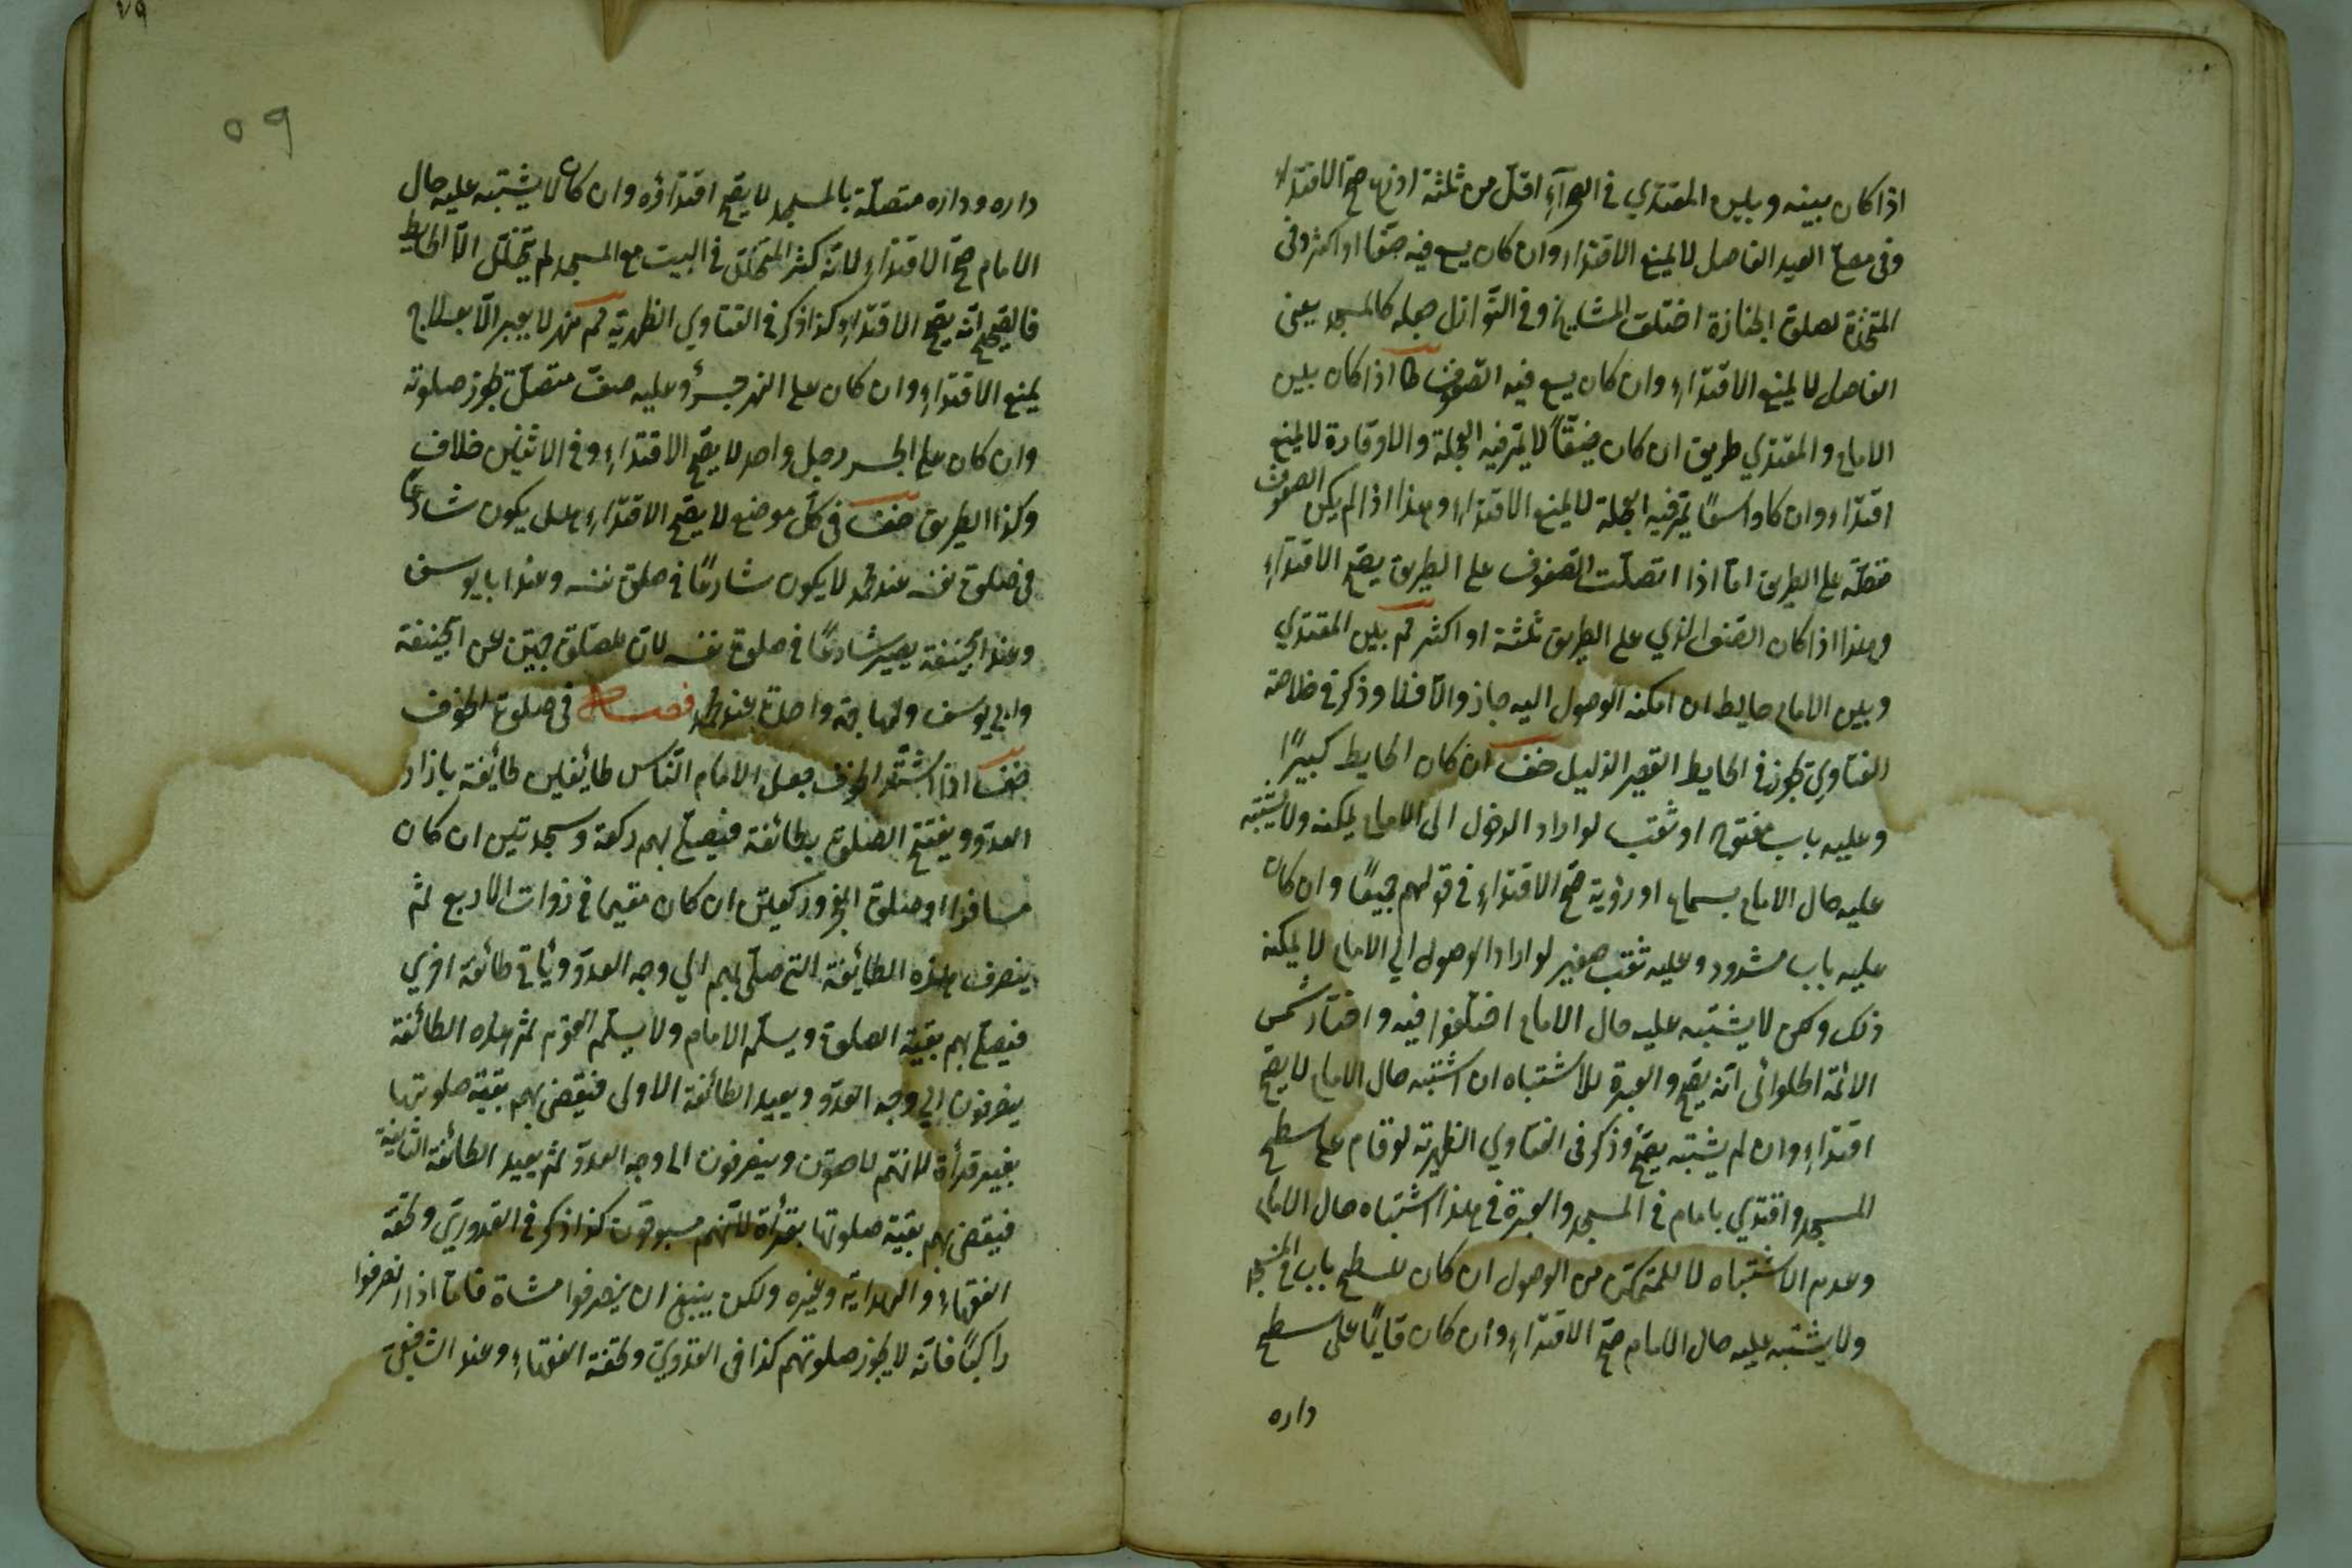 اذا كان بينه وبين المقتدي في الصحرآء اقل من ثلثة اذرع صح الاقتداء
وفى مصلى العيد الفاصل لا يمنع الاقتداء وان كان يسع فيه صفا او اكثر وفى
المتخذة لصلوة الجنازة اختلف المشايخ وفى النوازل جعله كالمسجد يعنى
الفاصل لا يمنع الاقتداء وان كان يسع فيه الصفوف طا اذا كان بين
الامام والمقتدي طريق ان كان ضيقًا لا يمر فيه العجلة والاوقار لا يمنع
اقتداء وان كا واسعًا يمر فيه العجلة لا يمنع الاقتداء وهذا اذا لم يكن الصفوف
متصلة على الطريق امّا اذا اتصلت الصفوف على الطريق يصح الاقتداء
وهذا اذا كان الصف الذي على الطريق ثلثة او اكثر ثم بين المقتدي
وبين الامام حايط ان امكنه الوصول اليه جاز والّا فلا وذكر في خلاصة
الفتاوي يجوز في الحايط القصير الذليل خف ان كان الحايط كبيرًا
وعليه باب مفتوح او ثقب لو اراد الدخول الى الامام يمكنه ولا يشتبه
عليه حال الامام بسماع او رؤية صح الاقتداء في قولهم جميعًا وان كان
عليه باب مسدود وعليه ثقب صغير لو اراد الوصول الي الامام لا يمكنه
ذلك ولكن لا يشتبه عليه حال الامام اختلفوا فيه واختار شمس
الائمة الحلوائى انّه يصح والعبرة للاشتباه ان اشتبه حال الامام لا يصح
اقتداء وان لم يشتبه يصحّ وذكر فى الفتاوي الظهيرية لو قام على سطح
المسجد واقتدي بامام في المسجد والعبرة في هذا اشتباه حال الامام
وعدم الاشتباه لا للتمكن من الوصول ان كان للسطح باب في المسجد
ولا يشتبه عليه حال الامام صح الاقتداء وان كان قايمًا على سطح
داره
٥٩
داره وداره متصلة بالمسجد لا يصح اقتداؤه وان كان لا يشتبه عليه حال
الامام صح الاقتداء لانه كثر المتخلل في البيت مع المسجد لم يتخلل الّا الحايط
فالصحيح انّه يصح الاقتداء وكذا ذكر في الفتاوي الظهرية ثم نهر لا يعبر الّا بعلاج
يمنع الاقتداء وان كان على النهر جسر وعليه صفّ متصل يجوز صلوته
وان كان على الجسر رجل واحد لا يصح الاقتداء وفى الاثنين خلاف
وكذا الطريق خف في كل موضع لا يصح الاقتداء هل يكون شارعًا
في صلوة نفسه عند محمد لا يكون شارعًا في صلوة نفسه وعند ابا يوسف
وعند ابيحنيفة يصير شارعًا في صلوة نفسه لانّ للصلوة جهتين عن ابيحنيفة
وابي يوسف ولها جهة واحدة عند محمد فصل فى صلوة الخوف
خف اذا اشتد الخوف جعل الامام النّاس طائفين طائفة بازاء
العدوّ ويفتتح الصلوة بطائفة فيصلّى بهم ركعة وسجدتين ان كان
مسافرا او صلوة الفجر وركعتين ان كان مقيما فى ذوات الاربع ثمّ
ينصرف هذه الطائفة التى صلّى بهم الي وجه العدوّ ويأتى طائفة اخري
فيصلّى بهم بقيّة الصلوة ويسلّم الامام ولا يسلّم القوم ثمّ هذه الطائفة
ينصرفون الي وجه العدوّ ويعيد الطائفة الاولى فيقضى بهم بقيّة صلوتها
بغير قرأة لانّهم لاحقون وينصرفون الى وجه العدوّ ثمّ يعيد الطائفة الثانية
فيقضى بهم بقيّة صلوتها بقرأة لانّهم مسبوقون كذا ذكر فى القدورى وتحفة
الفقهاء والهداية وغيره ولكن ينبغى ان ينصرفوا مشاة فامّا اذا انصرفوا
راكبًا فانّه لا يجوز صلوتهم كذا فى القدوري وتحفة الفقهاء وعند الشافعى